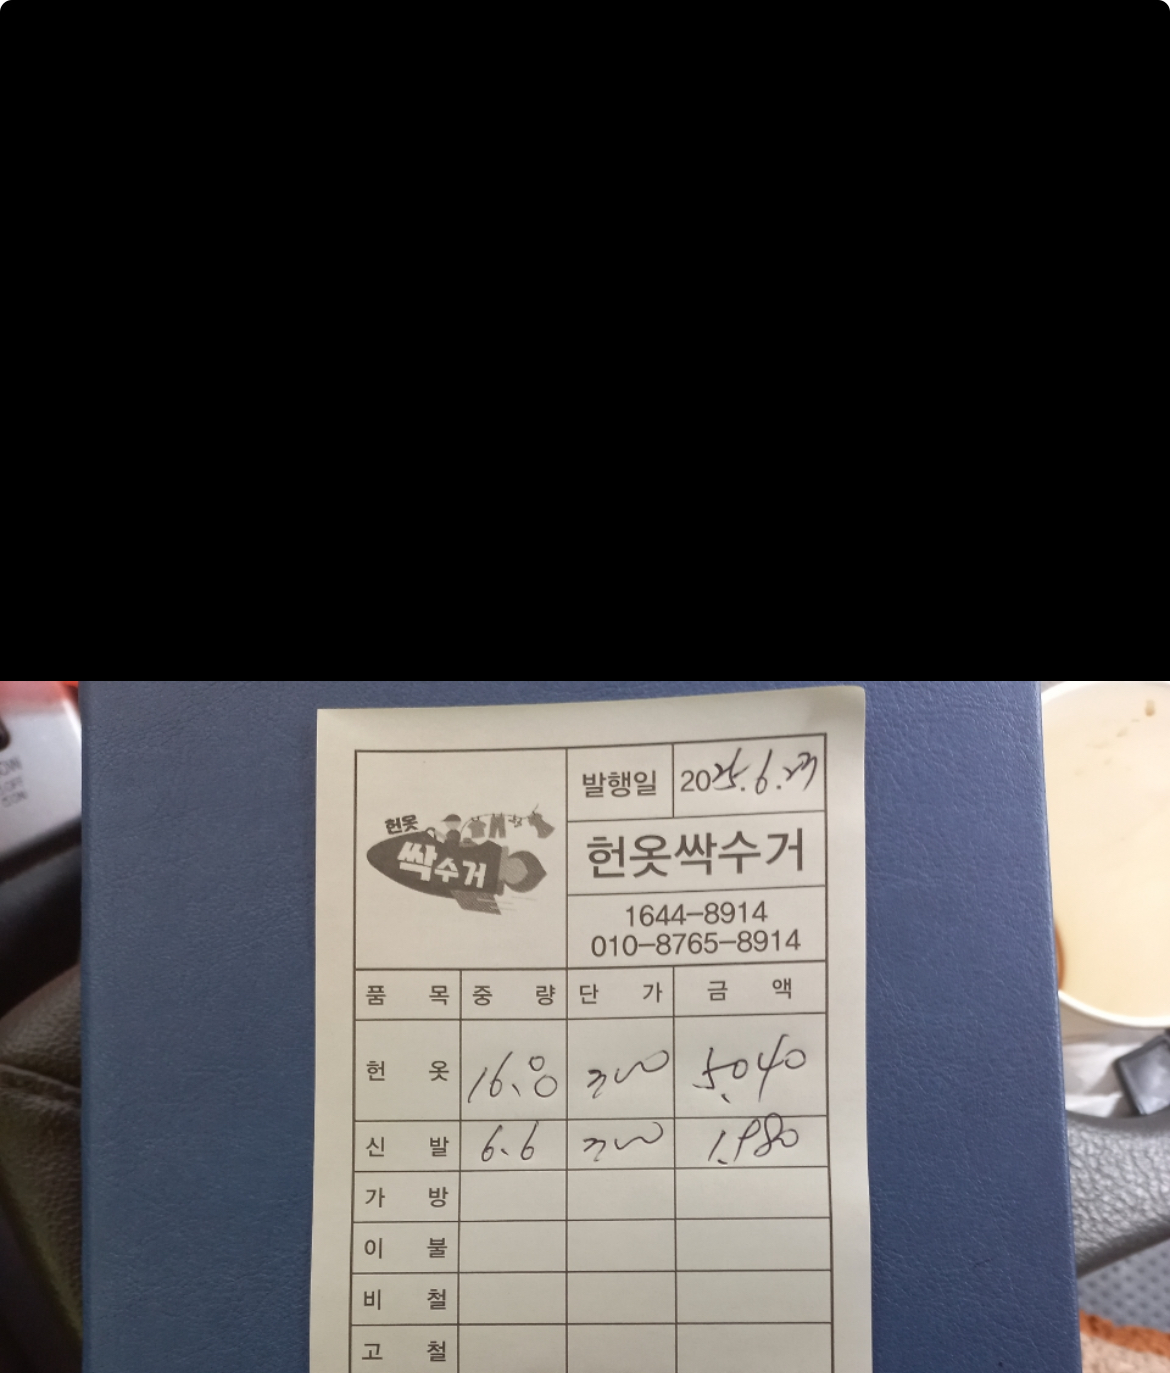 발행일 2025.6.23
헌옷
싹수거
헌옷싹수거
1644-8914
010-8765-8914
품목 중량 단가 금액
헌옷 16.8 300 5.040
신발 6.6 300 1.980
가방
이불
비철
고철